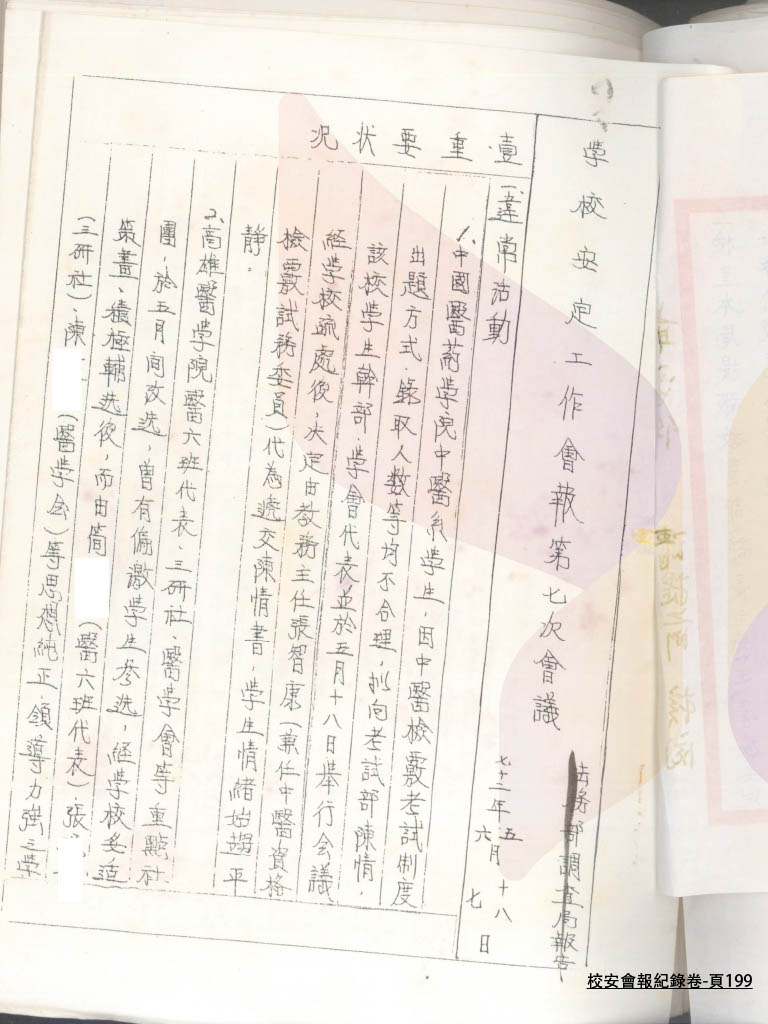 學校安定工作會報第七次會議
法務部調查局報告
七十二年五月十八日
六 七
壹、重要狀況
一、違常活動
1、中國醫葯學院中醫系學生，因中醫檢覈考試制度
出題方式、錄取人数等均不合理，拟向考試部陳情，
該校學生幹部、學會代表並於五月十八日舉行会議
經學校疏處後，决定由教務主任張智康（兼任中醫資格
檢覈試務委員）代為遞交陳情書，學生情緒始趨平
靜。
2、高雄醫学院醫六班代表、三研社、醫学會等重點社
團，於五月间改选，曾有偏激学生參选，經学校妥适
策畫、積極輔选後，而由簡（醫六班代表）、張
（三研社）、陳（醫学会）等思想純正、領導力強之学
校安會報紀錄卷-頁199